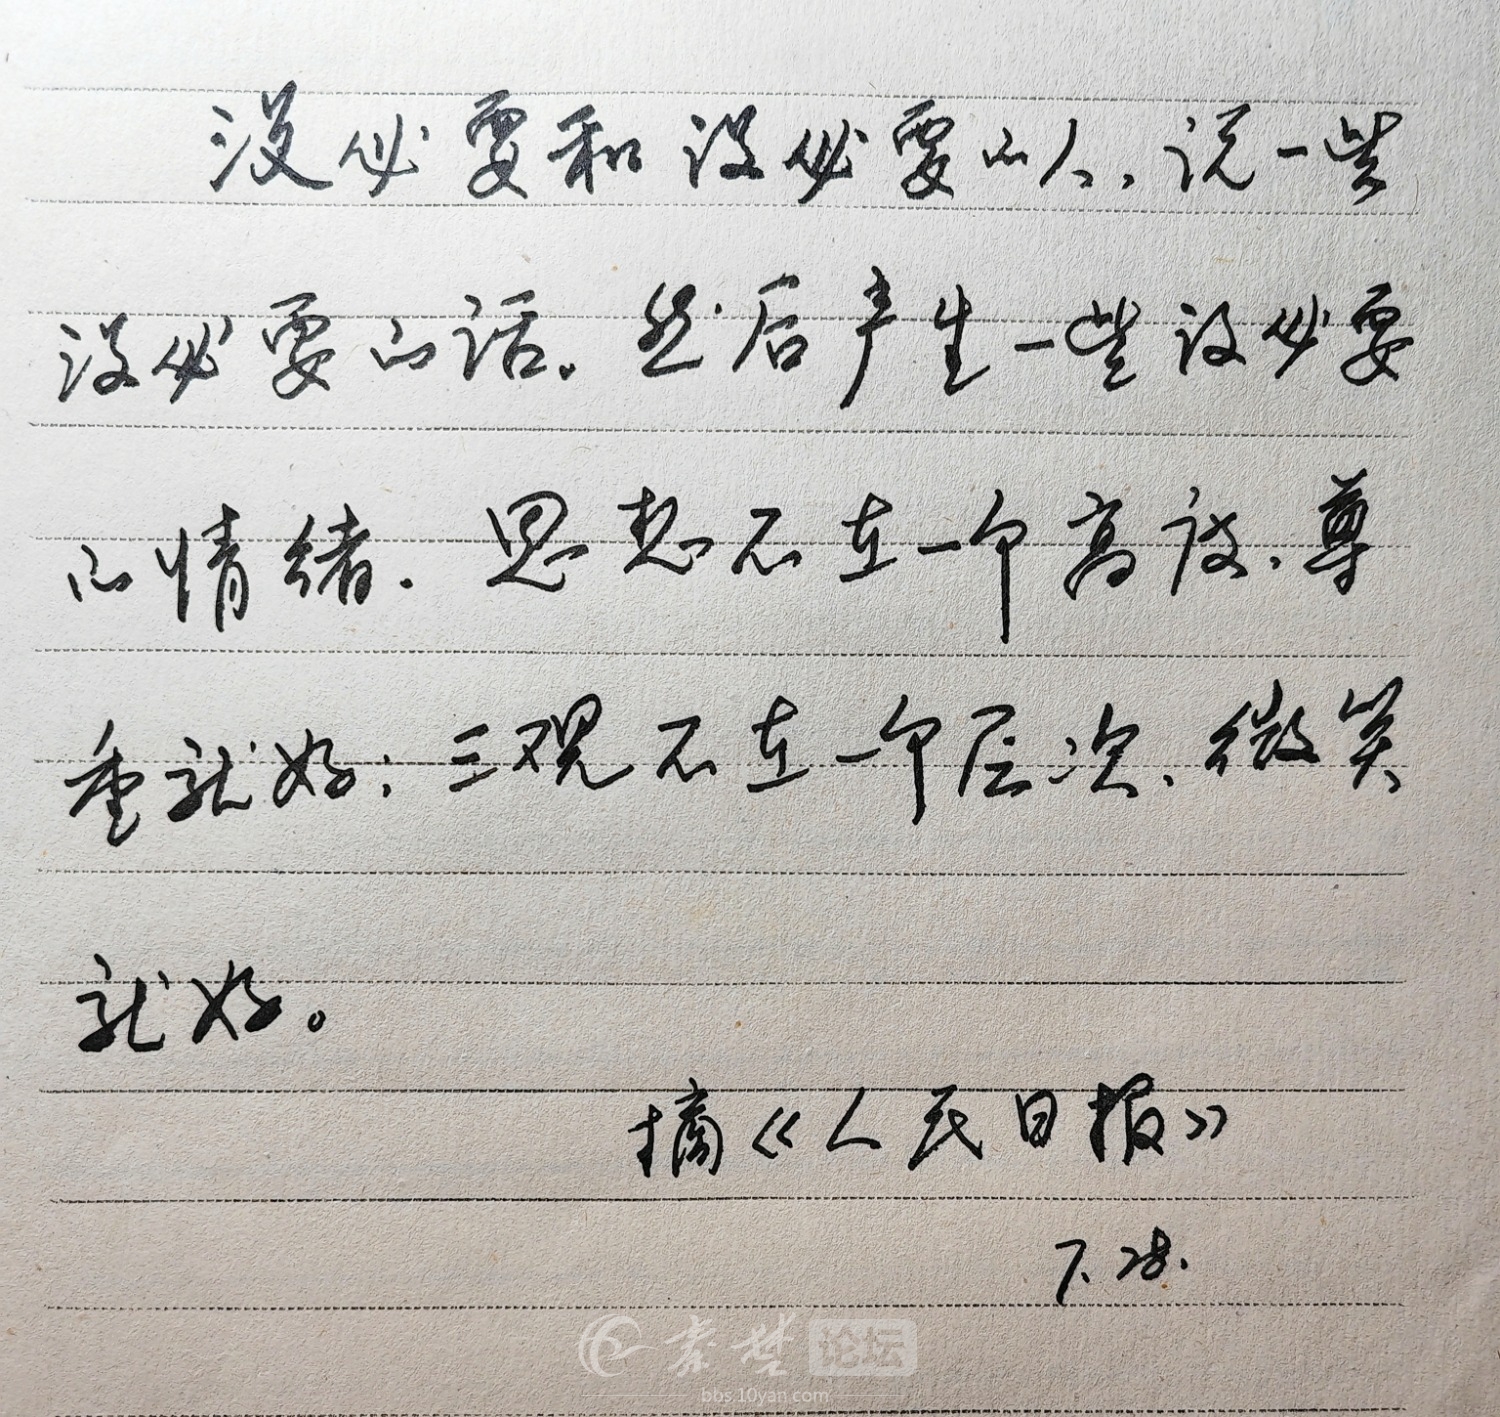 没必要和没必要的人，说一些
没必要的话。然后产生一些没必要
的情绪. 思想不在一个高度、尊
重就好；三观不在一个层次、微笑
就好。
摘《人民日报》
7.28.
秦楚论坛
bbs.10yan.com